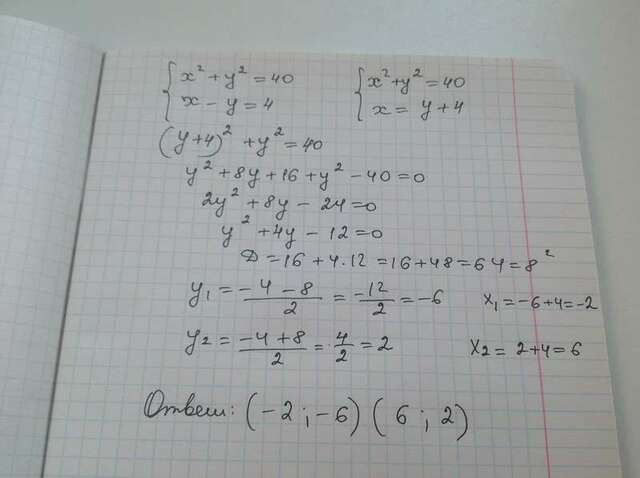 x² + y² = 40    x² + y² = 40
x - y = 4    x = y + 4
(y+4)² + y² = 40
y² + 8y + 16 + y² - 40 = 0
2y² + 8y - 24 = 0
y² + 4y - 12 = 0
D = 16 + 4·12 = 16 + 48 = 64 = 8²
y₁ = (-4 - 8)/2 = -12/2 = -6    x₁ = -6+4 = -2
y₂ = (-4 + 8)/2 = 4/2 = 2    x₂ = 2+4 = 6
Ответ: (-2 ; -6) (6 ; 2)